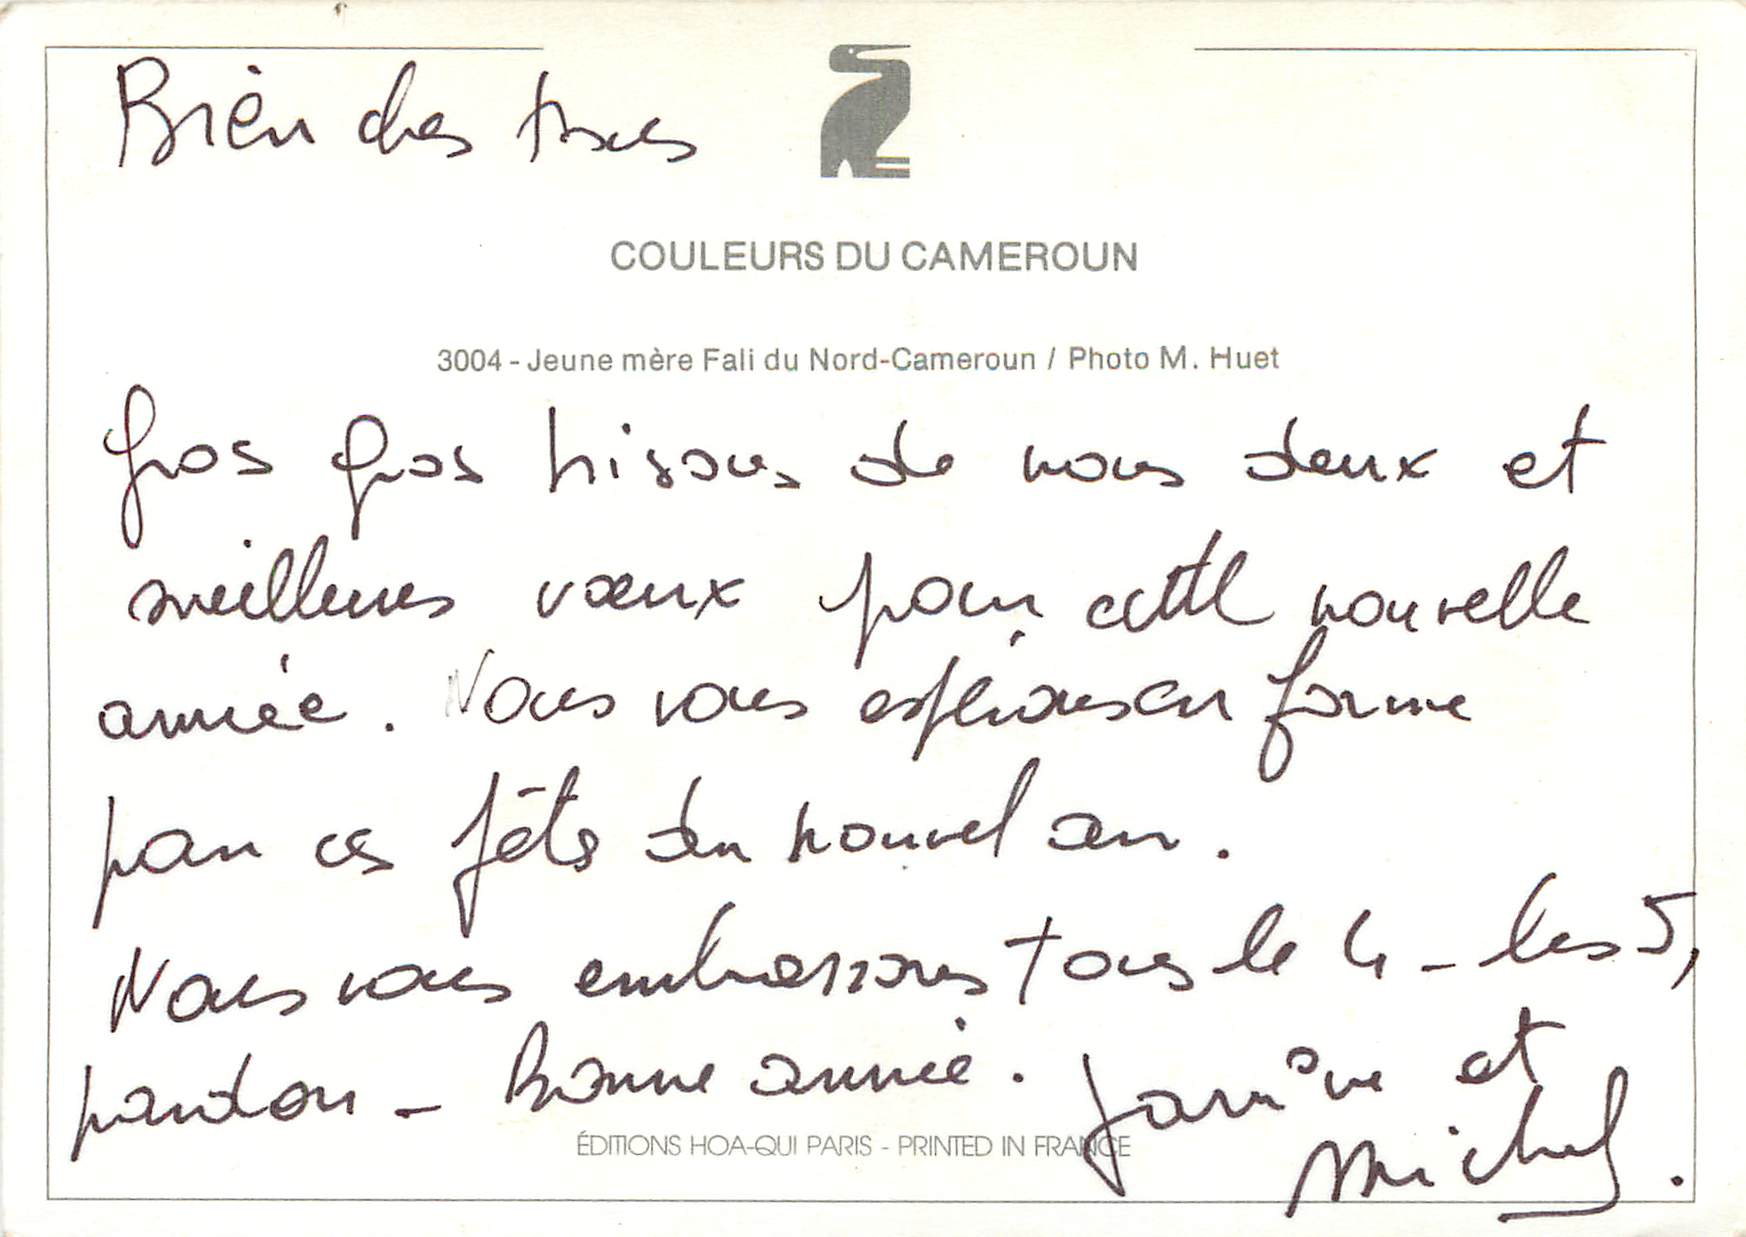 Bien des
COULEURS DU CAMEROUN
3004 - Jeune mère Fali du Nord-Cameroun / Photo M. Huet
gros gros bisous de nous deux et
meilleures vœux pour cette nouvelle
année. Nous vous espérons en forme
pour ces fêtes du nouvel an.
Nous vous embrassons tous le 4 - les 5,
pardon - Bonne année. et
ÉDITIONS HOA-QUI PARIS - PRINTED IN FRANCE
Michel.